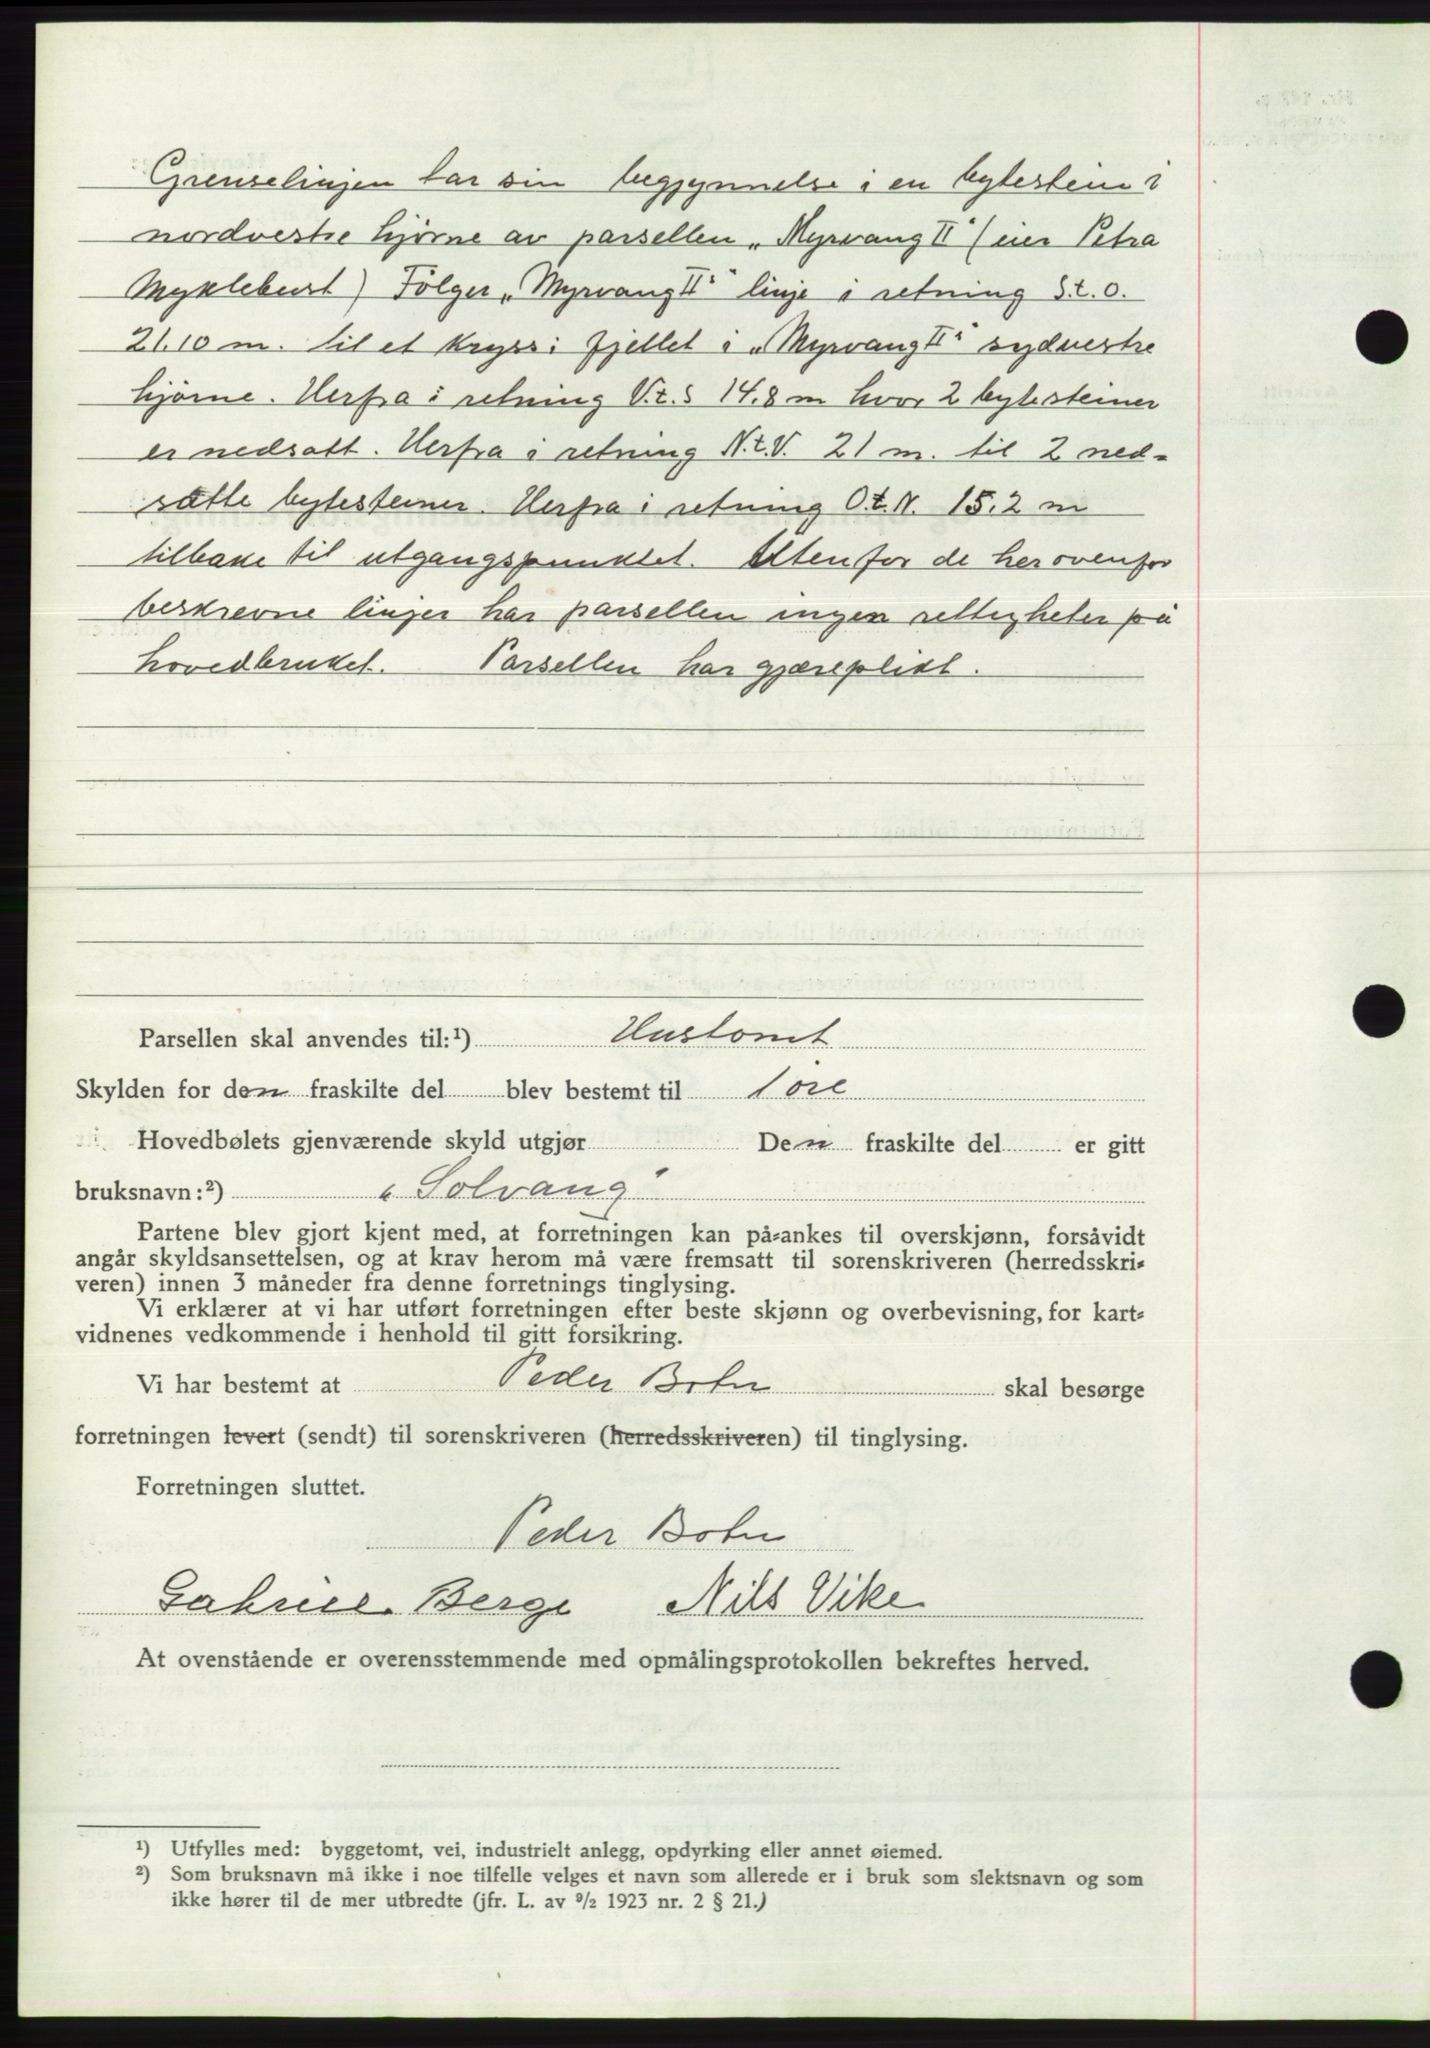 Grenselinjen tar sin begjynnelse i en bytestein i
nordvestre hjørne av parsellen „Myrvang II" (eier Petra
Myklebust) Følger „Myrvang II" linje i retning S.t.O.
21.10 m. til et kryss i fjellet i „Myrvang II" sydvestre
hjørne. Herfra i retning V.t.S 14.8 m hvor 2 bytesteiner
er nedsatt. Herfra i retning N.t.V. 21 m. til 2 ned-
satte bytesteiner. Herfra i retning O.t.N. 15.2 m
tilbake til utgangspunktet. Utenfor de her ovenfor
beskrevne linjer har parsellen ingen rettigheter på
hovedbruket. Parsellen har gjæreplikt.
Parsellen skal anvendes til:¹) Hustomt
Skylden for den fraskilte del blev bestemt til 1 øre
Hovedbølets gjenværende skyld utgjør Den fraskilte del er gitt
bruksnavn:²) „Solvang"
Partene blev gjort kjent med, at forretningen kan på-ankes til overskjønn, forsåvidt
angår skyldsansettelsen, og at krav herom må være fremsatt til sorenskriveren (herredsskri-
veren) innen 3 måneder fra denne forretnings tinglysing.
Vi erklærer at vi har utført forretningen efter beste skjønn og overbevisning, for kart-
vidnenes vedkommende i henhold til gitt forsikring.
Vi har bestemt at Peder Botn skal besørge
forretningen levert (sendt) til sorenskriveren (herredsskriveren) til tinglysing.
Forretningen sluttet.
Peder Botn
Gabriel Berge Nils Vike
At ovenstående er overensstemmende med opmålingsprotokollen bekreftes herved.
¹) Utfylles med: byggetomt, vei, industrielt anlegg, opdyrking eller annet øiemed.
²) Som bruksnavn må ikke i noe tilfelle velges et navn som allerede er i bruk som slektsnavn og som
ikke hører til de mer utbredte (jfr. L. av ⁹/₂ 1923 nr. 2 § 21.)